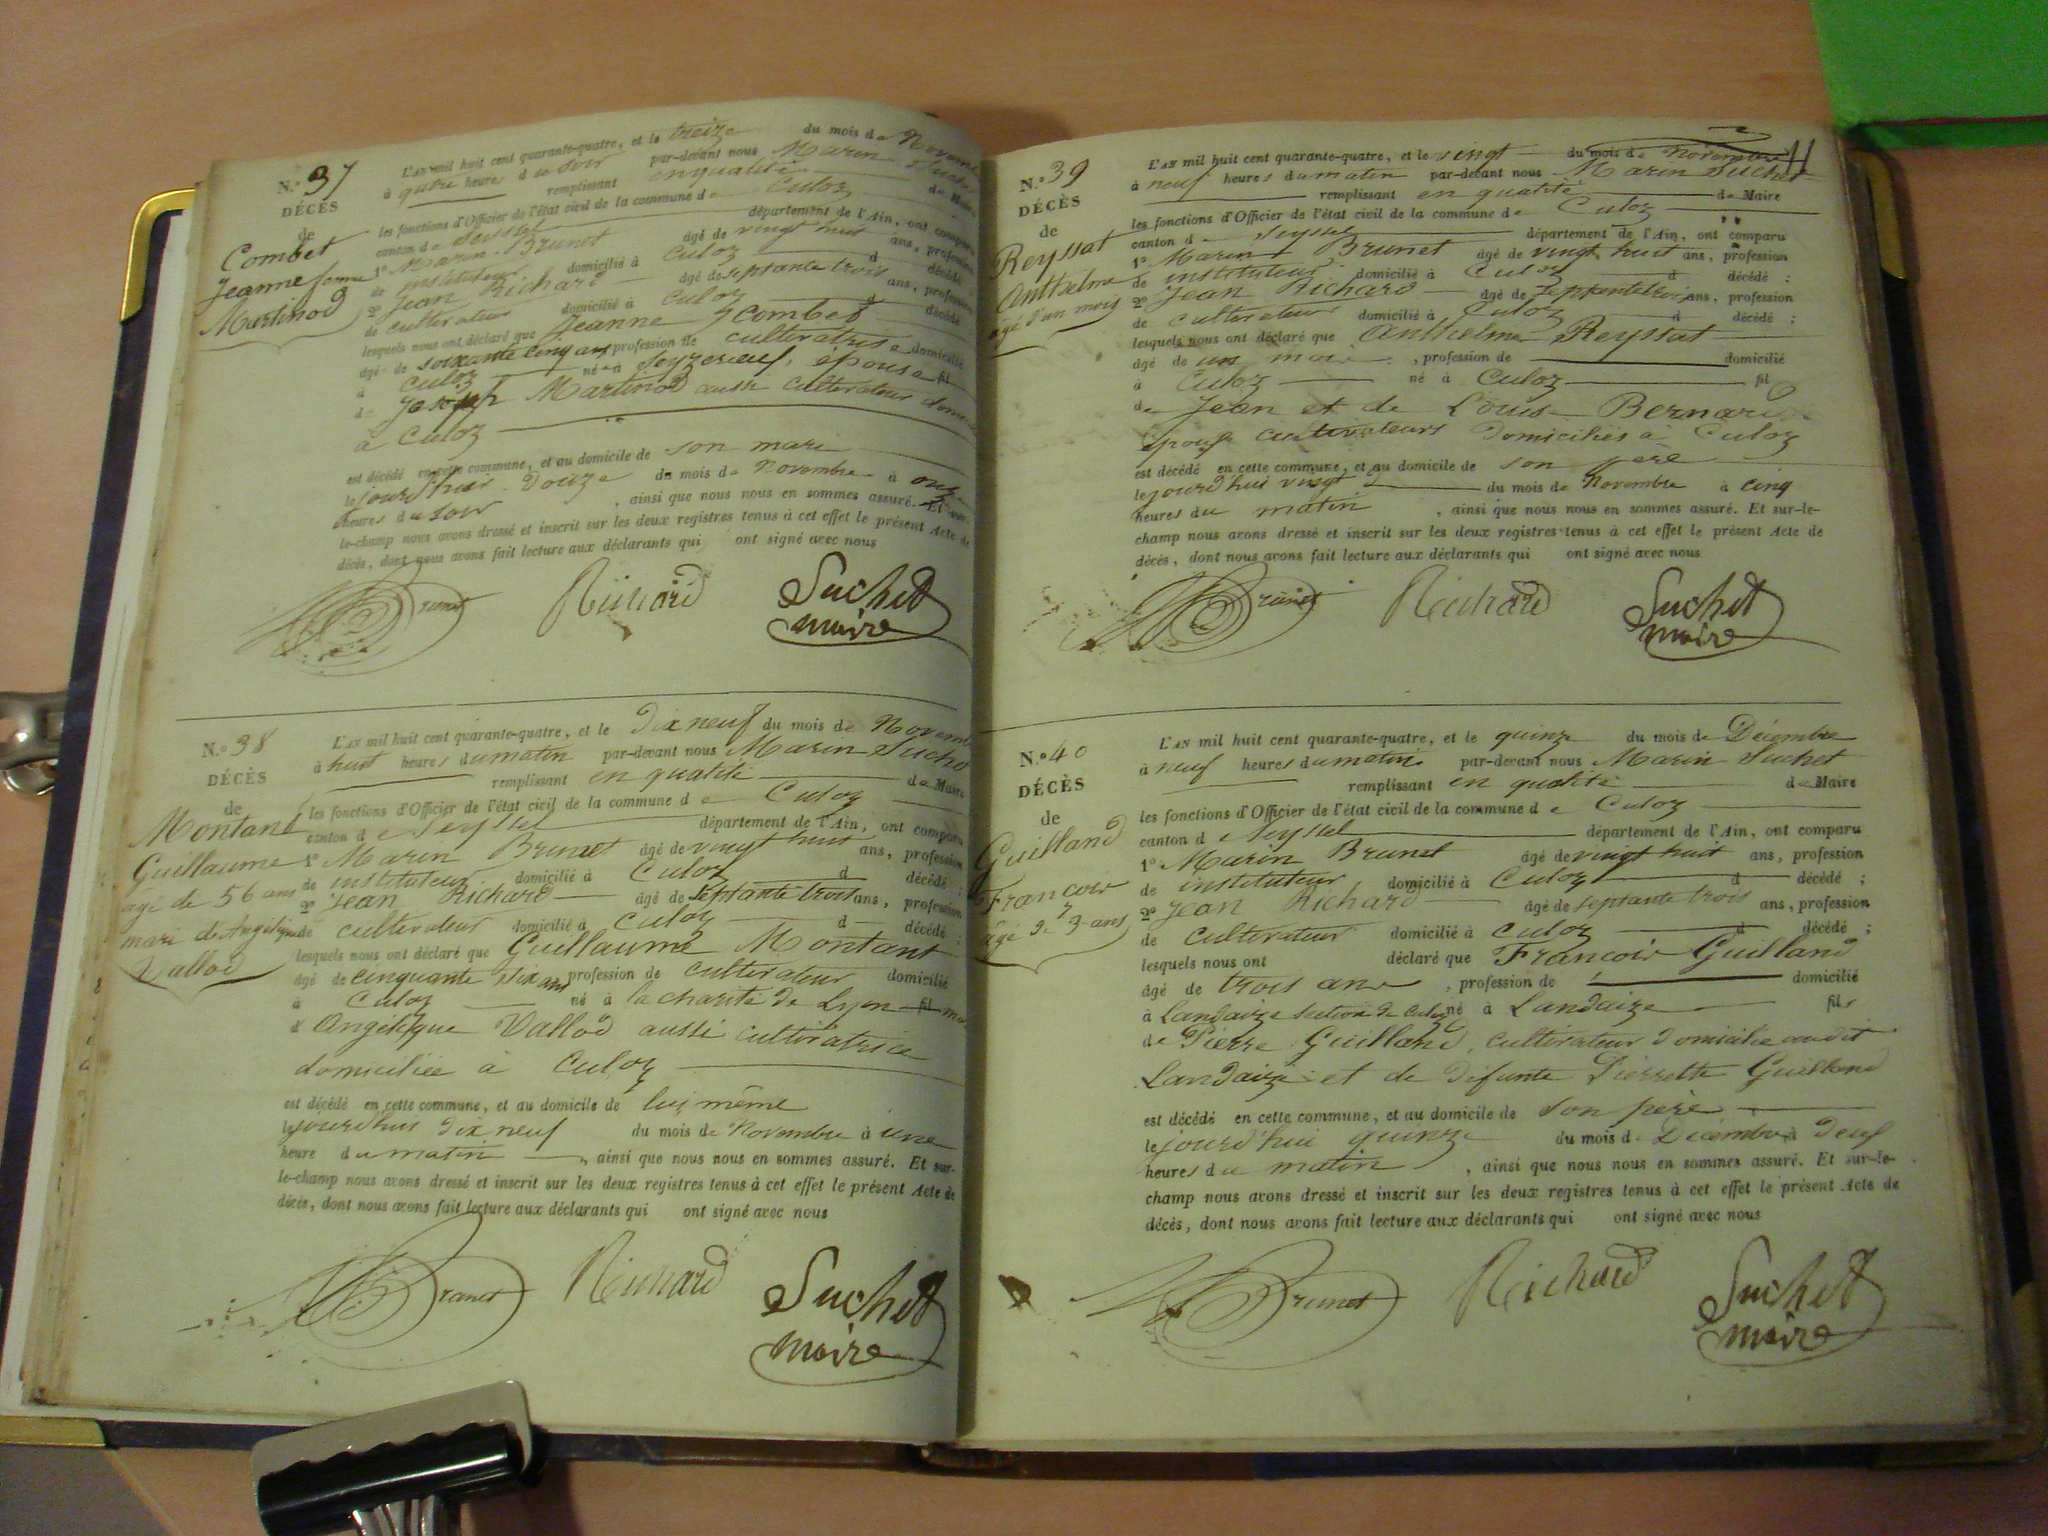 N.° 37
DÉCÈS
de
Combet
Jeanne femme
Martinod
L'AN mil huit cent quarante-quatre, et le treize du mois de Novem
à quatre heures du soir par-devant nous Marin Suche
remplissant en qualité de Maire
les fonctions d'Officier de l'état civil de la commune de Culoz
canton de Seyssel département de l'Ain, ont comparu
1° Marin Brunet âgé de vingt huit ans, profession
de instituteur domicilié à Culoz d décédé
2° Jean Richard âgé de septante trois ans, profession
de cultivateur domicilié à Culoz d décédé
lesquels nous ont déclaré que Jeanne Combet
âgé de soixante cinq ans profession de cultivatrice domicilié
à Culoz né à épouse fil
de Joseph Martinod aussi cultivateur
à Culoz
est décédé en cette commune, et au domicile de son mari
le jourd'hui douze du mois de Novembre à onze
heures du soir, ainsi que nous nous en sommes assuré. Et sur-
le-champ nous avons dressé et inscrit sur les deux registres tenus à cet effet le présent Acte de
décès, dont nous avons fait lecture aux déclarants qui ont signé avec nous
Brunet Richard Suchet
maire
N.° 38
DÉCÈS
de
Montant
Guillaume
âgé de 56 ans
mari de Angélique
Vallod
L'AN mil huit cent quarante-quatre, et le dix neuf du mois de Novemb
à huit heures du matin par-devant nous Marin Suche
remplissant en qualité de Maire
les fonctions d'Officier de l'état civil de la commune de Culoz
canton de Seyssel département de l'Ain, ont comparu
1° Marin Brunet âgé de vingt huit ans, profession
de instituteur domicilié à Culoz d décédé ;
2° Jean Richard âgé de septante trois ans, profession
de cultivateur domicilié à Culoz d décédé ;
lesquels nous ont déclaré que Guillaume Montant
âgé de cinquante six ans profession de cultivateur domicilié
à Culoz né à la charité de Lyon fil
d Angélique Vallod aussi cultivatrice
domiciliée à Culoz
est décédé en cette commune, et au domicile de lui même
le jourd'hui dix neuf du mois de Novembre à une
heure du matin, ainsi que nous nous en sommes assuré. Et sur-
le-champ nous avons dressé et inscrit sur les deux registres tenus à cet effet le présent Acte de
décès, dont nous avons fait lecture aux déclarants qui ont signé avec nous
Brunet Richard Suchet
maire
N.° 39
DÉCÈS
de
Reyssat
Anthelme
âgé d'un mois
L'AN mil huit cent quarante-quatre, et le vingt du mois de Novembre
à neuf heures du matin par-devant nous Marin Suchet
remplissant en qualité de Maire
les fonctions d'Officier de l'état civil de la commune de Culoz
canton d Seyssel département de l'Ain, ont comparu
1° Marin Brunet âgé de vingt huit ans, profession
de instituteur domicilié à Culoz d décédé :
2° Jean Richard âgé de septante trois ans, profession
de cultivateur domicilié à Culoz d décédé ;
lesquels nous ont déclaré que Anthelme Reyssat
âgé de un mois, profession de domicilié
à Culoz né à Culoz fil
de Jean et de Louis Bernard
époux cultivateurs domiciliés à Culoz
est décédé en cette commune, et au domicile de son père
le jourd'hui vingt du mois de Novembre à cinq
heures du matin, ainsi que nous nous en sommes assuré. Et sur-le-
champ nous avons dressé et inscrit sur les deux registres tenus à cet effet le présent Acte de
décès, dont nous avons fait lecture aux déclarants qui ont signé avec nous
Brunet Richard Suchet
maire
N.° 40
DÉCÈS
de
Guilland
François
âgé de 3 ans
L'AN mil huit cent quarante-quatre, et le quinze du mois de Décembre
à neuf heures du matin par-devant nous Marin Suchet
remplissant en qualité de Maire
les fonctions d'Officier de l'état civil de la commune de Culoz
canton de Seyssel département de l'Ain, ont comparu
1° Marin Brunet âgé de vingt huit ans, profession
de instituteur domicilié à Culoz d décédé ;
2° Jean Richard âgé de septante trois ans, profession
de cultivateur domicilié à Culoz d décédé ;
lesquels nous ont déclaré que François Guilland
âgé de trois ans, profession de domicilié
à Landaize section de Culoz né à Landaize fils
de Pierre Guilland, cultivateur domicilié audit
Landaize et de défunte Pierrette Guilland
est décédé en cette commune, et au domicile de son père
le jourd'hui quinze du mois de Décembre à
heures du matin, ainsi que nous nous en sommes assuré. Et sur-le-
champ nous avons dressé et inscrit sur les deux registres tenus à cet effet le présent Acte de
décès, dont nous avons fait lecture aux déclarants qui ont signé avec nous
Brunet Richard Suchet
maire